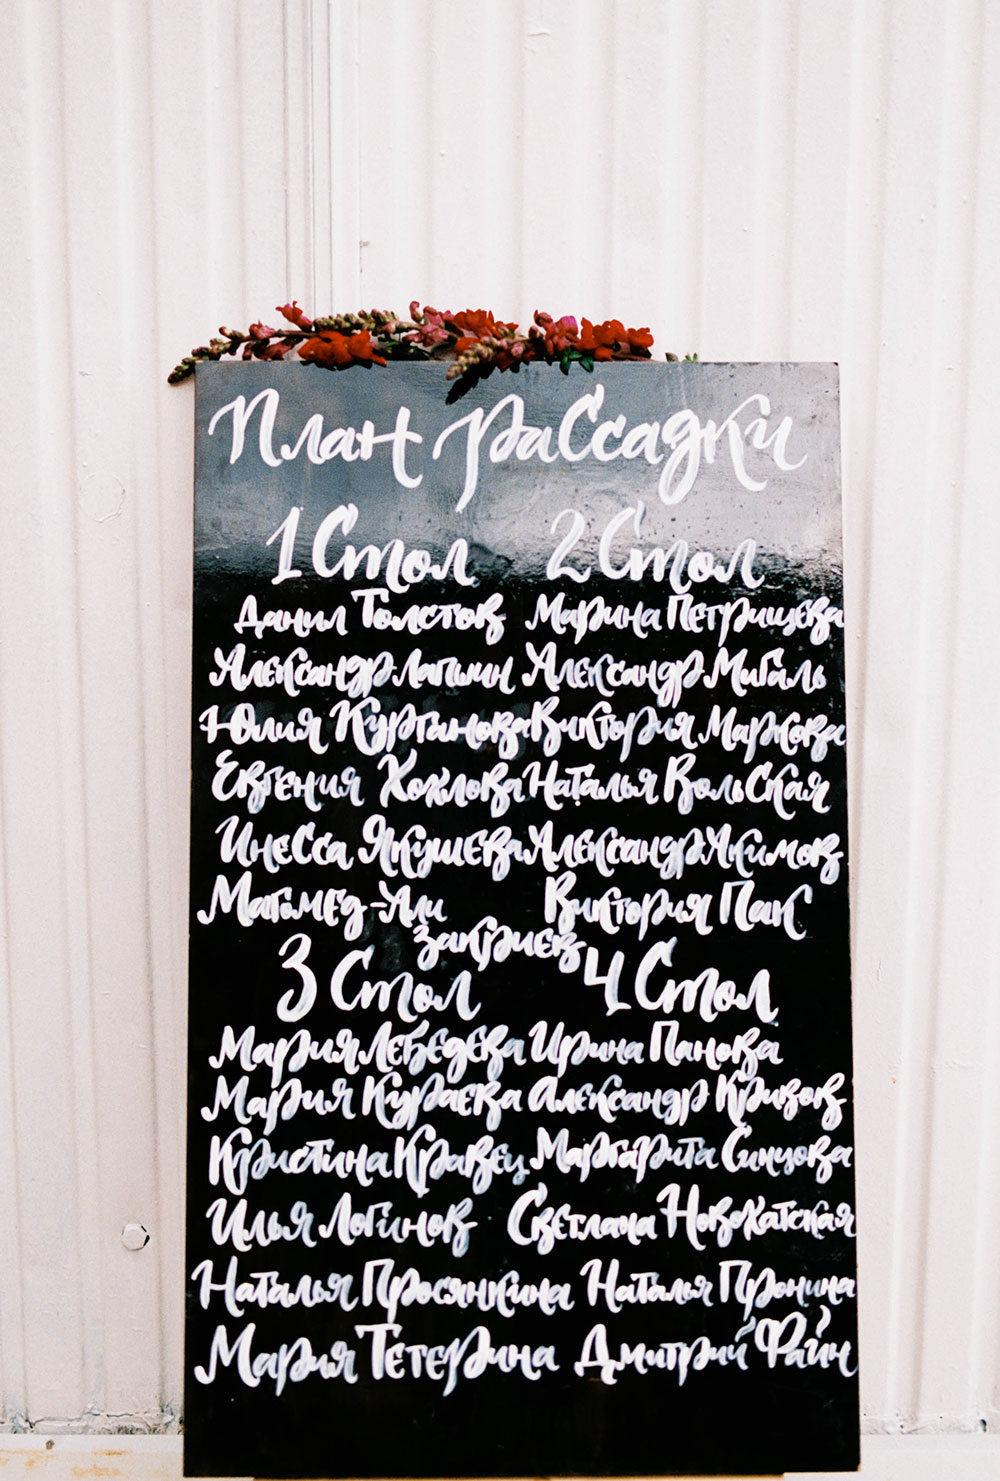 План рассадки
1 Стол
Данил Толстов
Александр Лапшин
Юлия Курганова
Евгения Хохлова
Инесса Якушева
Магомед-Али
Закриев
2 Стол
Марина Петрищева
Александр Мигаль
Виктория Маркова
Наталья Вольская
Александр Якимов
Виктория Пак
3 Стол
Мария Лебедева
Мария Кураева
Кристина Кравец
Илья Логинов
Наталья Просянкина
Мария Тетерина
4 Стол
Ирина Панова
Александр Кривов
Маргарита Синцова
Светлана Новохатская
Наталья Пронина
Дмитрий Файн